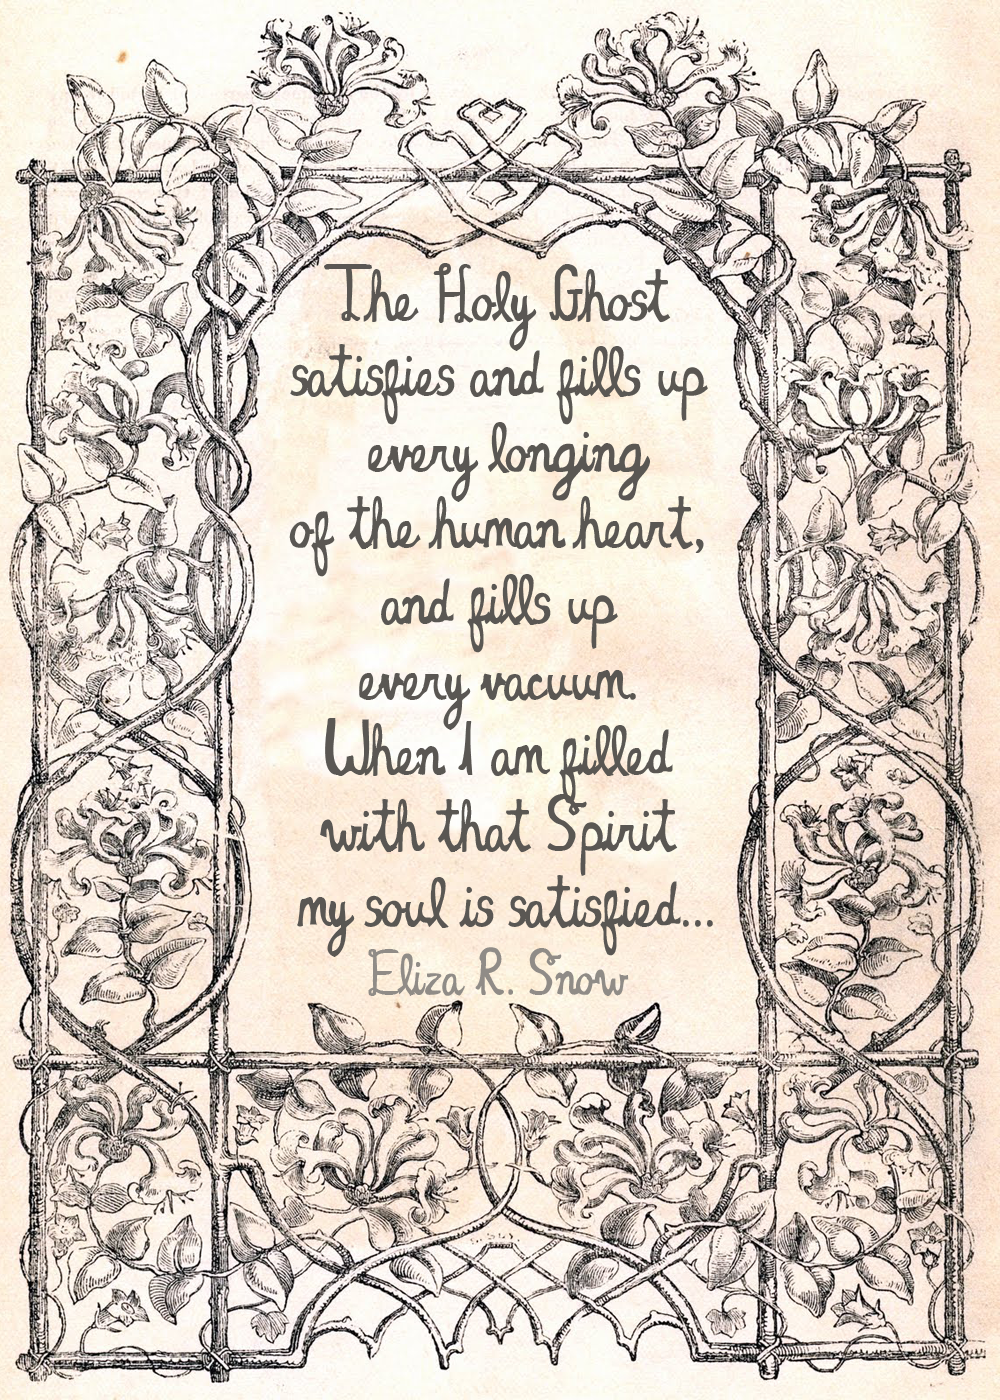 The Holy Ghost
satisfies and fills up
every longing
of the human heart,
and fills up
every vacuum.
When I am filled
with that Spirit
my soul is satisfied...
Eliza R. Snow